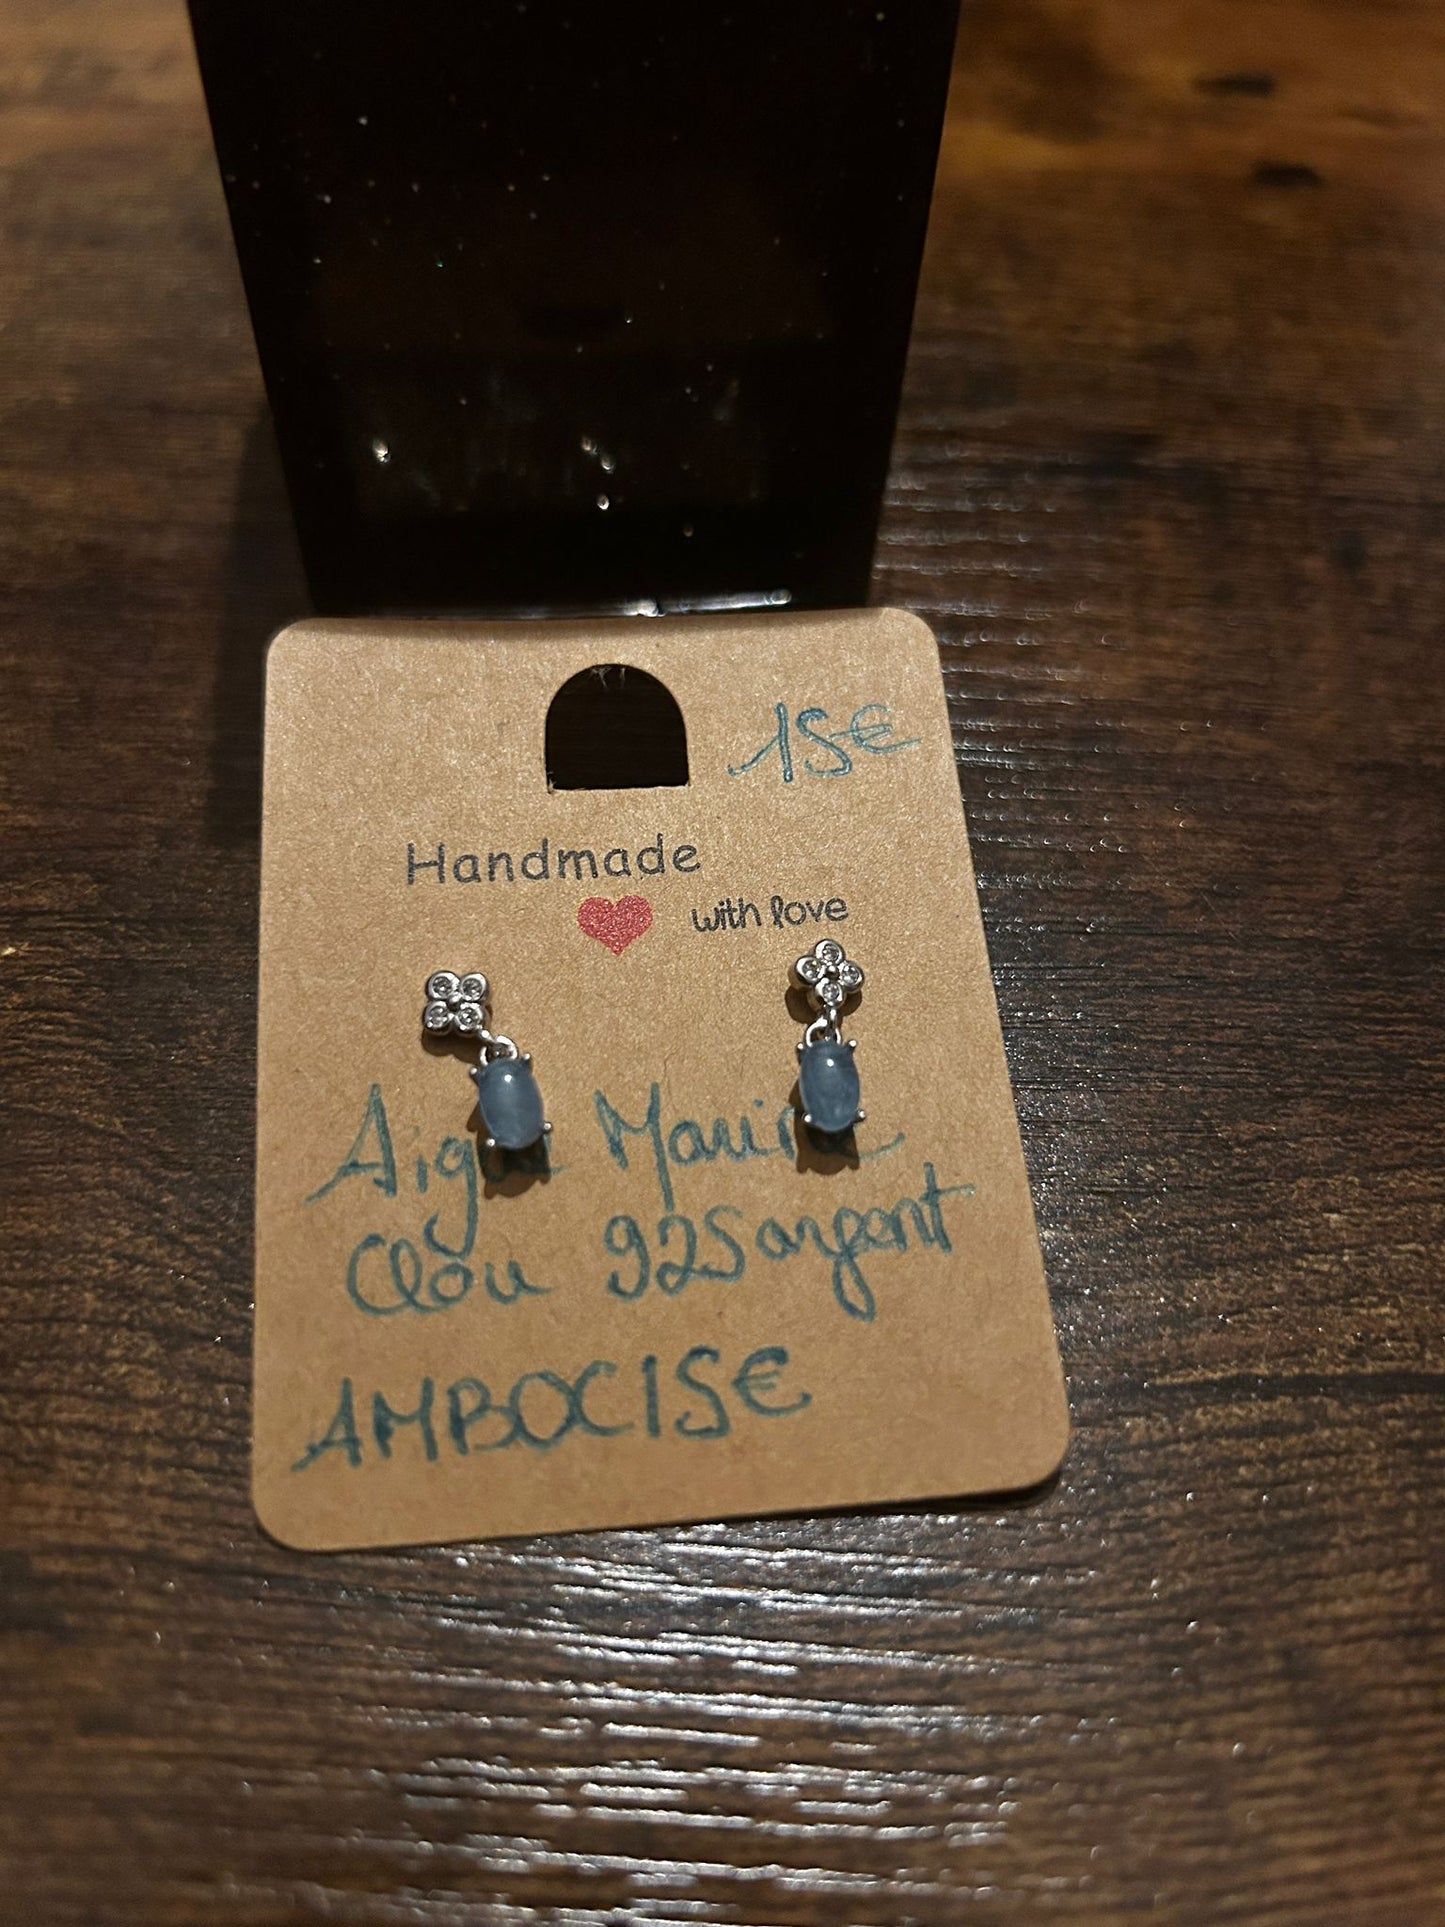 15€
Handmade
with love
Aigue Marine
Clou 925 argent
AMBOC15€